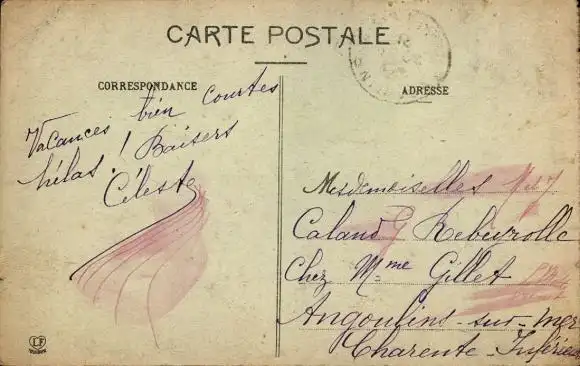 CARTE POSTALE
CORRESPONDANCE
ADRESSE
Vacances bien courtes
hélas! Baisers
Céleste
Mesdemoiselles
Caland Rebeyrolle
Chez Mme Gillet
Angoulins-sur-Mer
Charente-Inférieu
LF